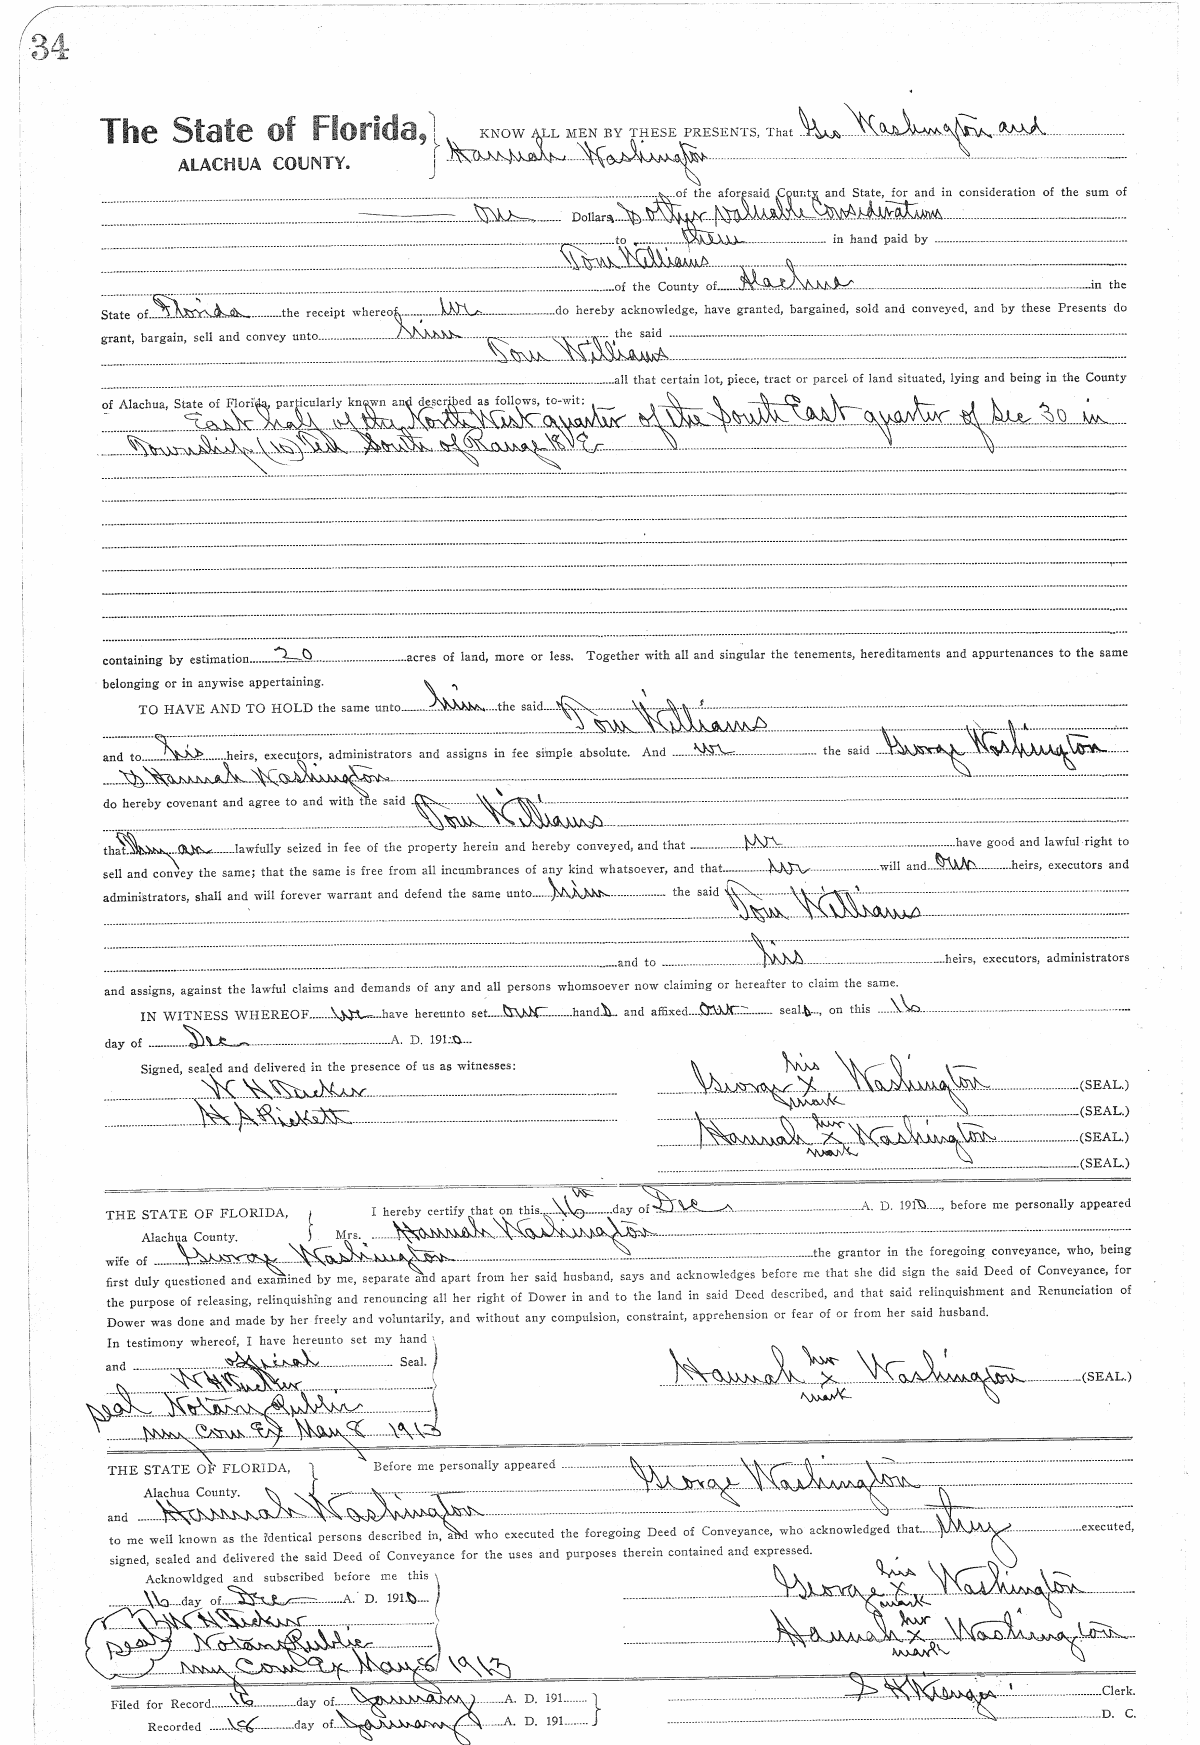 34
The State of Florida, KNOW ALL MEN BY THESE PRESENTS, That Geo Washington and
ALACHUA COUNTY. Hannah Washington
of the aforesaid County and State, for and in consideration of the sum of
One Dollars & other valuable Considerations
to them in hand paid by
Tom Williams
of the County of Alachua in the
State of Florida the receipt whereof we do hereby acknowledge, have granted, bargained, sold and conveyed, and by these Presents do
grant, bargain, sell and convey unto him the said
Tom Williams
all that certain lot, piece, tract or parcel of land situated, lying and being in the County
of Alachua, State of Florida, particularly known and described as follows, to-wit:
East half of the North West quarter of the South East quarter of Sec 30 in
Township (10) Ten South of Range 18 E
containing by estimation 20 acres of land, more or less. Together with all and singular the tenements, hereditaments and appurtenances to the same
belonging or in anywise appertaining.
TO HAVE AND TO HOLD the same unto him the said Tom Williams
and to his heirs, executors, administrators and assigns in fee simple absolute. And we the said George Washington
& Hannah Washington
do hereby covenant and agree to and with the said Tom Williams
that They are lawfully seized in fee of the property herein and hereby conveyed, and that we have good and lawful right to
sell and convey the same; that the same is free from all incumbrances of any kind whatsoever, and that we will and our heirs, executors and
administrators, shall and will forever warrant and defend the same unto him the said Tom Williams
and to his heirs, executors, administrators
and assigns, against the lawful claims and demands of any and all persons whomsoever now claiming or hereafter to claim the same.
IN WITNESS WHEREOF we have hereunto set our hands and affixed our seals, on this 16
day of Dec A. D. 1910
Signed, sealed and delivered in the presence of us as witnesses:
W H Tucker
H A Rickett
George his X mark Washington (SEAL.)
(SEAL.)
Hannah her X mark Washington (SEAL.)
(SEAL.)
THE STATE OF FLORIDA, I hereby certify that on this 16th day of Dec A. D. 1910, before me personally appeared
Alachua County. Mrs. Hannah Washington
wife of George Washington the grantor in the foregoing conveyance, who, being
first duly questioned and examined by me, separate and apart from her said husband, says and acknowledges before me that she did sign the said Deed of Conveyance, for
the purpose of releasing, relinquishing and renouncing all her right of Dower in and to the land in said Deed described, and that said relinquishment and Renunciation of
Dower was done and made by her freely and voluntarily, and without any compulsion, constraint, apprehension or fear of or from her said husband.
In testimony whereof, I have hereunto set my hand
and official Seal.
W H Tucker
seal Notary Public
my Com Ex May 8 1913
Hannah her X mark Washington (SEAL.)
THE STATE OF FLORIDA, Before me personally appeared George Washington
Alachua County.
and Hannah Washington
to me well known as the identical persons described in, and who executed the foregoing Deed of Conveyance, who acknowledged that they executed,
signed, sealed and delivered the said Deed of Conveyance for the uses and purposes therein contained and expressed.
Acknowldged and subscribed before me this
16 day of Dec A. D. 1910
W H Tucker
seal Notary Public
my Com Ex May 8 1913
George his X mark Washington
Hannah her X mark Washington
Filed for Record 18 day of January A. D. 191 S H Wienges Clerk.
Recorded 18 day of January A. D. 191 D. C.